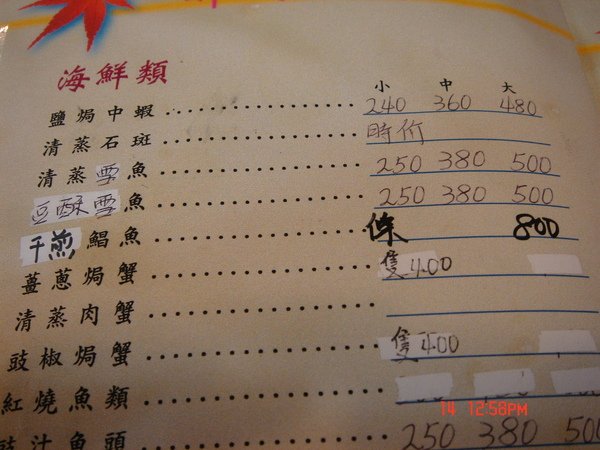 海鮮類
小 中 大
鹽焗中蝦 240 360 480
清蒸石斑 時价
清蒸雪魚 250 380 500
豆酥雪魚 250 380 500
干煎鯧魚 條 800
薑蔥焗蟹 隻400
清蒸肉蟹
豉椒焗蟹 隻400
紅燒魚類
豉汁魚頭 250 380 500
14 12:58PM